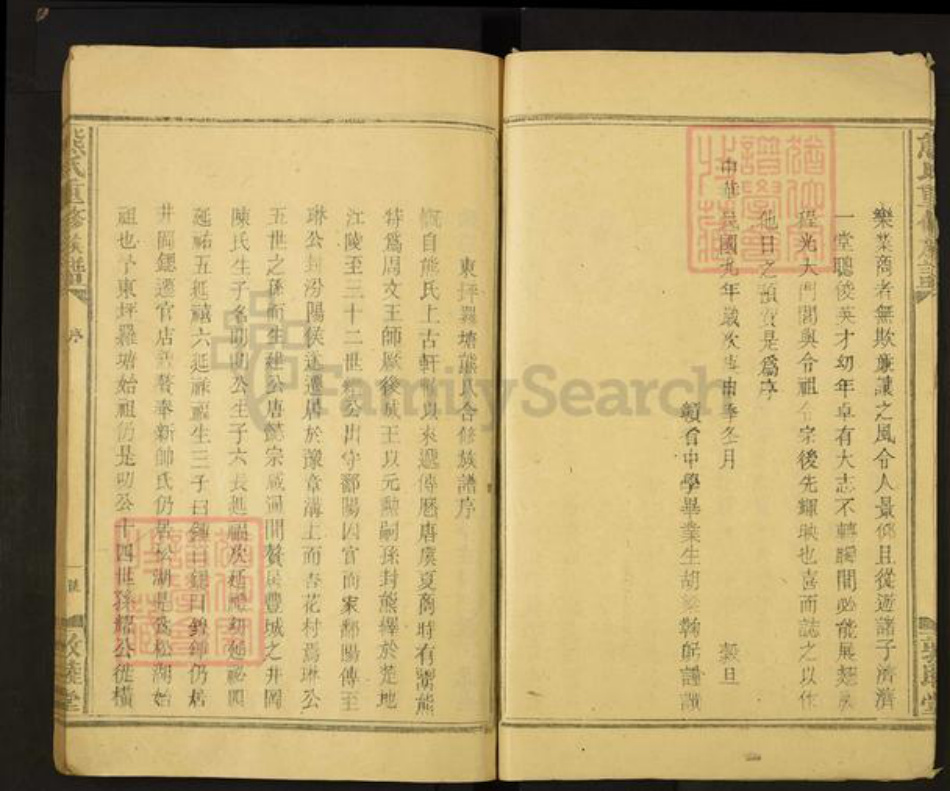 樂業商者無欺廉讓之風令人景仰且從遊諸子濟濟
一堂聰俊英才幼年卓有大志不轉瞬間必能展翅
程光大門閭與令祖令宗後先輝映也喜而誌之以作
他日之預賀是爲序
中華民國九年歲次庚申季冬月 穀旦
贛省中學畢業生胡 翰 謹識
熊氏重修族譜
序
一號
敦睦堂
東坪羅塘熊氏合修族譜序
慨自熊氏上古軒轅以來遞傳曆唐虞夏商時有鬻熊
特爲周文王師厥後成王以元勳嗣孫封熊繹於楚地
江陵至三十二世 公出守鄱陽因官而家鄱陽傳至
琳公封汾陽侯遂遷居於豫章溝上而杏花村焉琳公
五世之孫而生建公唐懿宗咸通間贅居豐城之井岡
陳氏生子名昉昉公生子六長延福次延 延 四
延祐五延禧六延祿福生三子曰 曰鍶曰 仍居
井岡鍶遷官店 贅奉新帥氏仍居松湖是爲松湖始
祖也予東坪羅塘始祖仍是昉公十四世孫 公從橫
FamilySearch